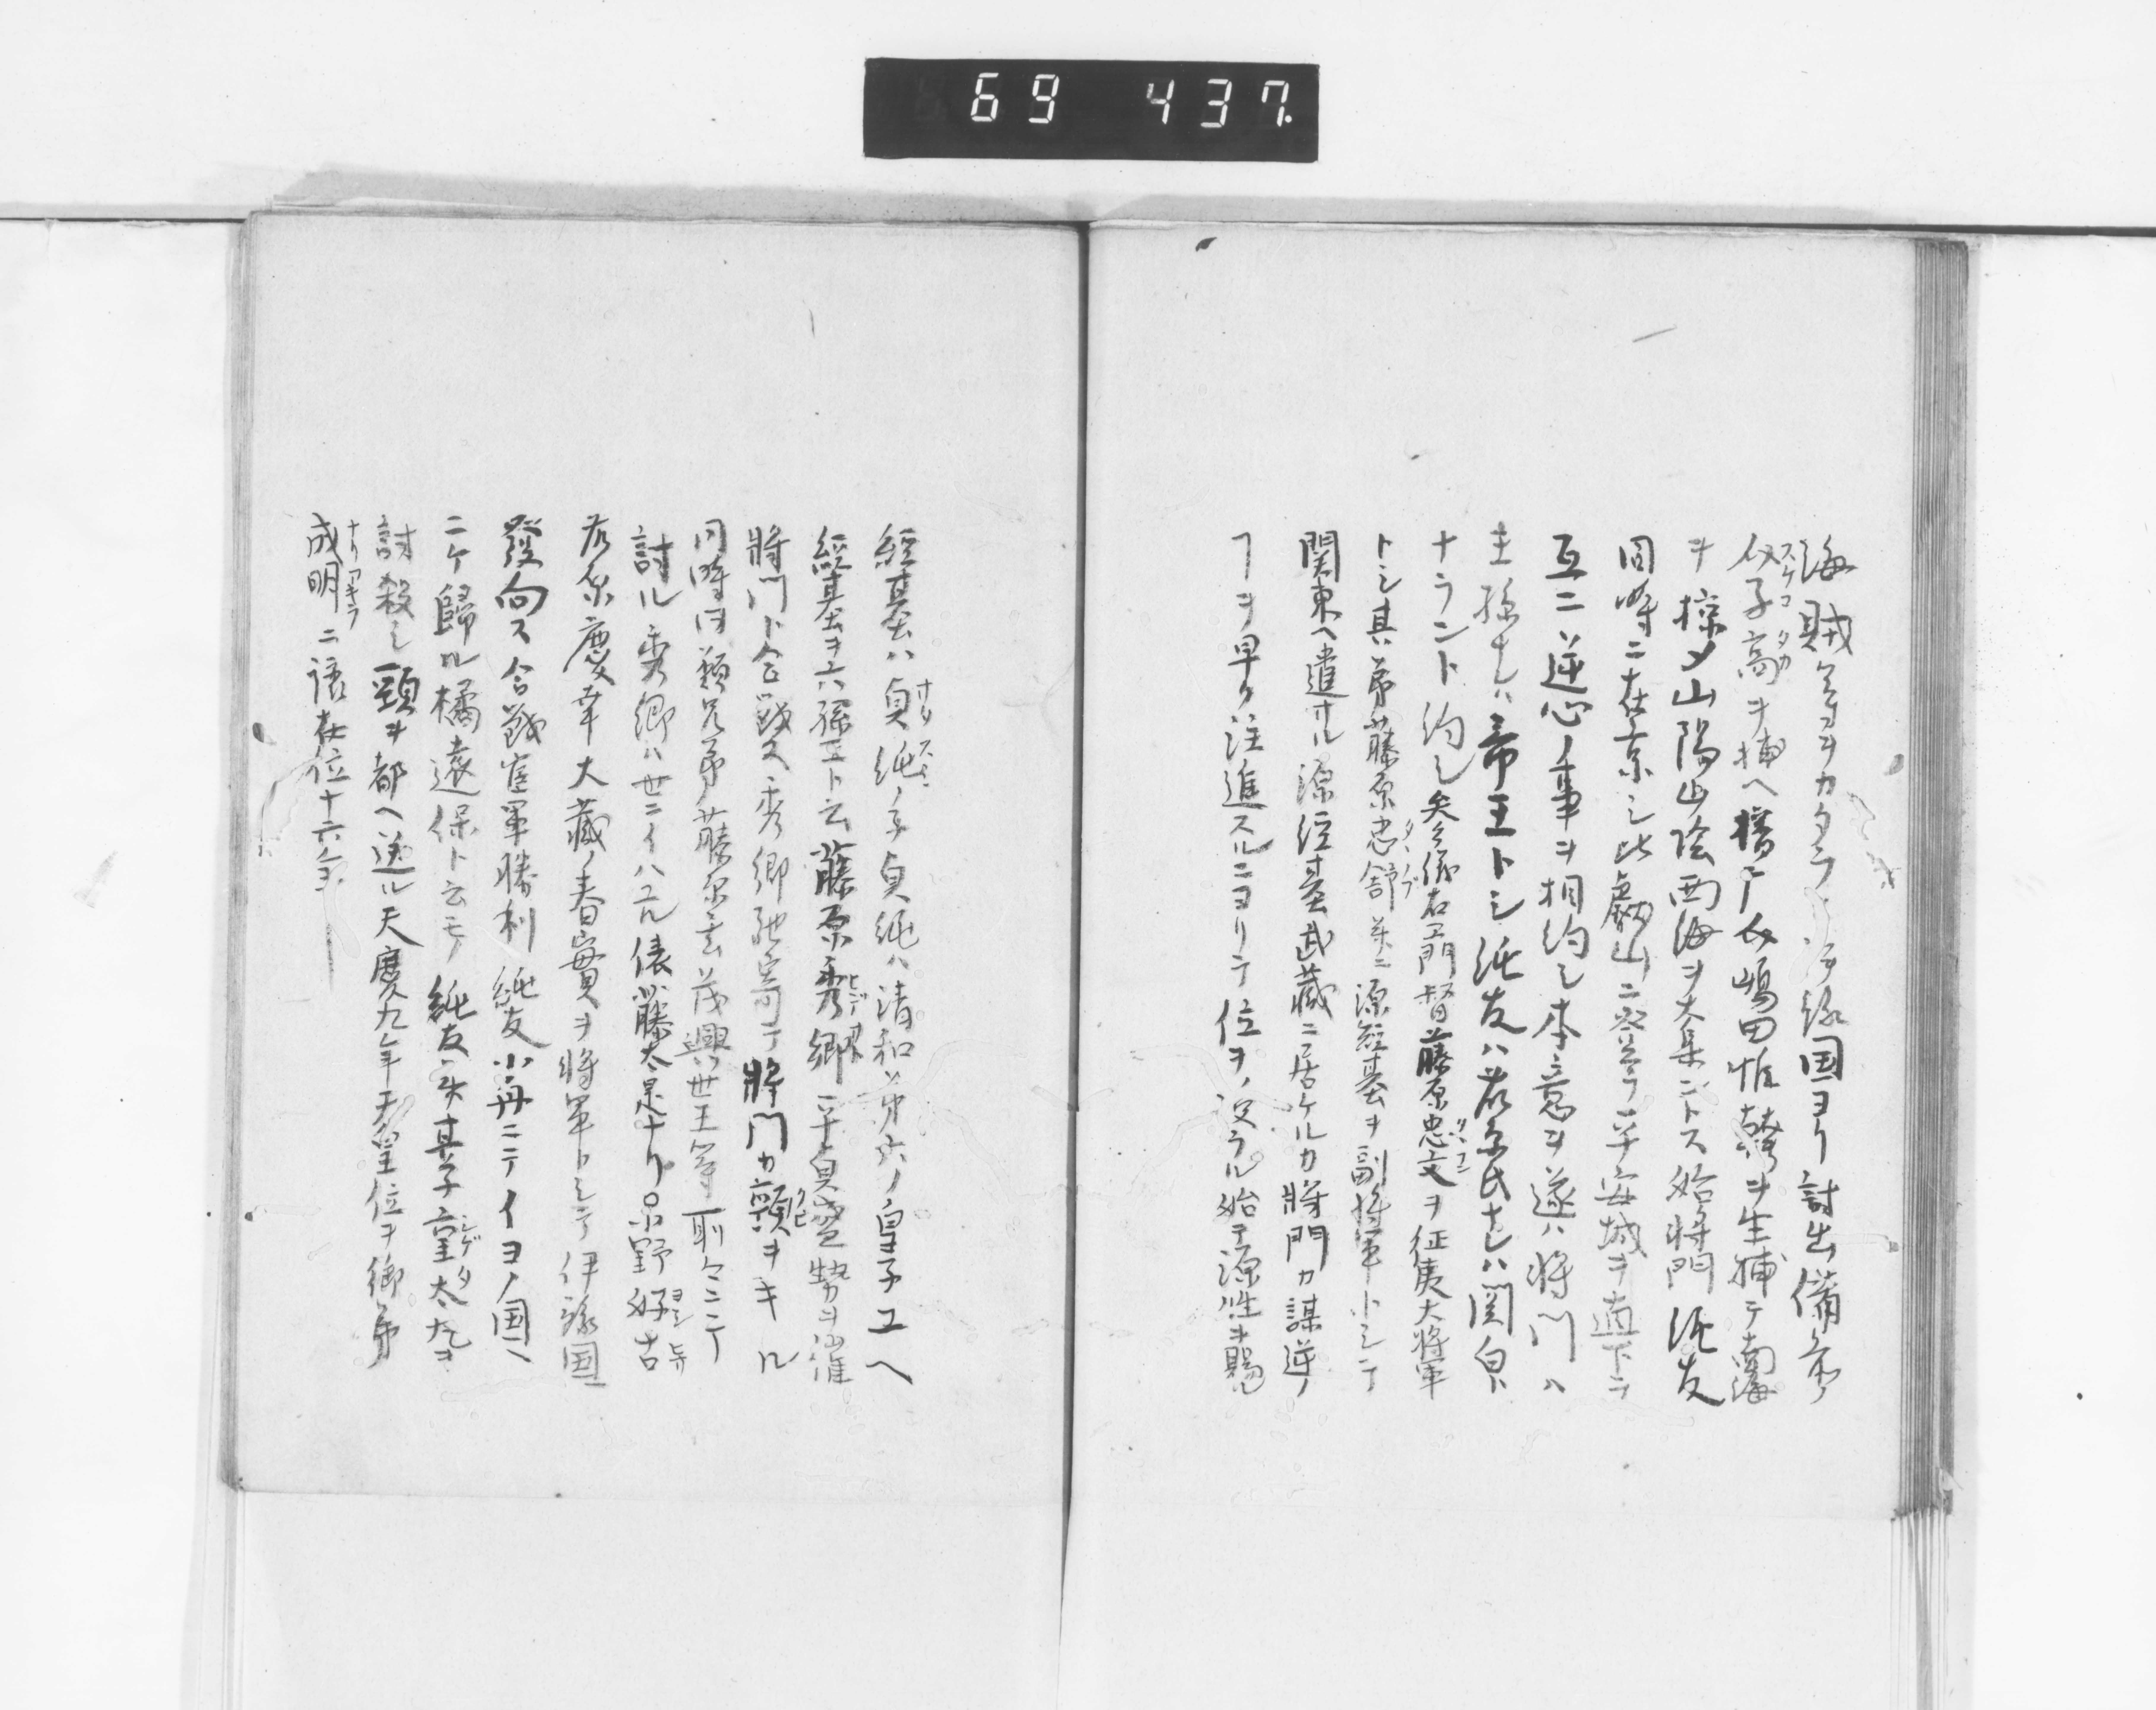 69 437.
海賊等ヲカタラヒ伊予国ヨリ討出備前ノ
介子高ヲ捕ヘ播广介嶋田惟幹ヲ生捕テ南海
ヲ掠メ山陽山陰西海ヲ犬集ントス始将門純友
同時ニ在京シ比叡山ニ登テ平安城ヲ直下テ
互ニ逆心ノ事ヲ相約シ本意ヲ遂ハ将門ハ
王孫ナレハ帝王トシ純友ハ藤原氏ナレハ関白ト
ナラント約シ矣参議右衛門督藤原忠文ヲ征夷大将軍
トシ其弟藤原忠舒并ニ源経基ヲ副将軍トシテ
関東ヘ遣サル源経基武蔵ニ居ケルカ将門カ謀逆ノ
ヿヲ早ク注進スルニヨリテ位ヲ授ラル始テ源姓ヲ賜
経基ハ貞純ノ子貞純ハ清和第六ノ皇子ユヘ
経基ヲ六孫王ト云藤原秀郷平貞盛勢ヲ催
将門ト合戦ス秀郷馳寄テ将門カ頸ヲキル
同時ニ同類兄弟藤原玄茂興世王等所々ニテ
討ル秀郷ハ世ニイハユル俵藤太是ナリ小野好古
藤原慶幸大蔵ノ春実ヲ将軍トシテ伊予国
發向ス合戦官軍勝利純友小舟ニテイヨノ国ヘ
ニケ歸ル橘遠保ト云モノ純友并其子重太丸ヲ
討殺シ頸ヲ都ヘ送ル天慶九年天皇位ヲ御弟
成明ニ譲在位十六年